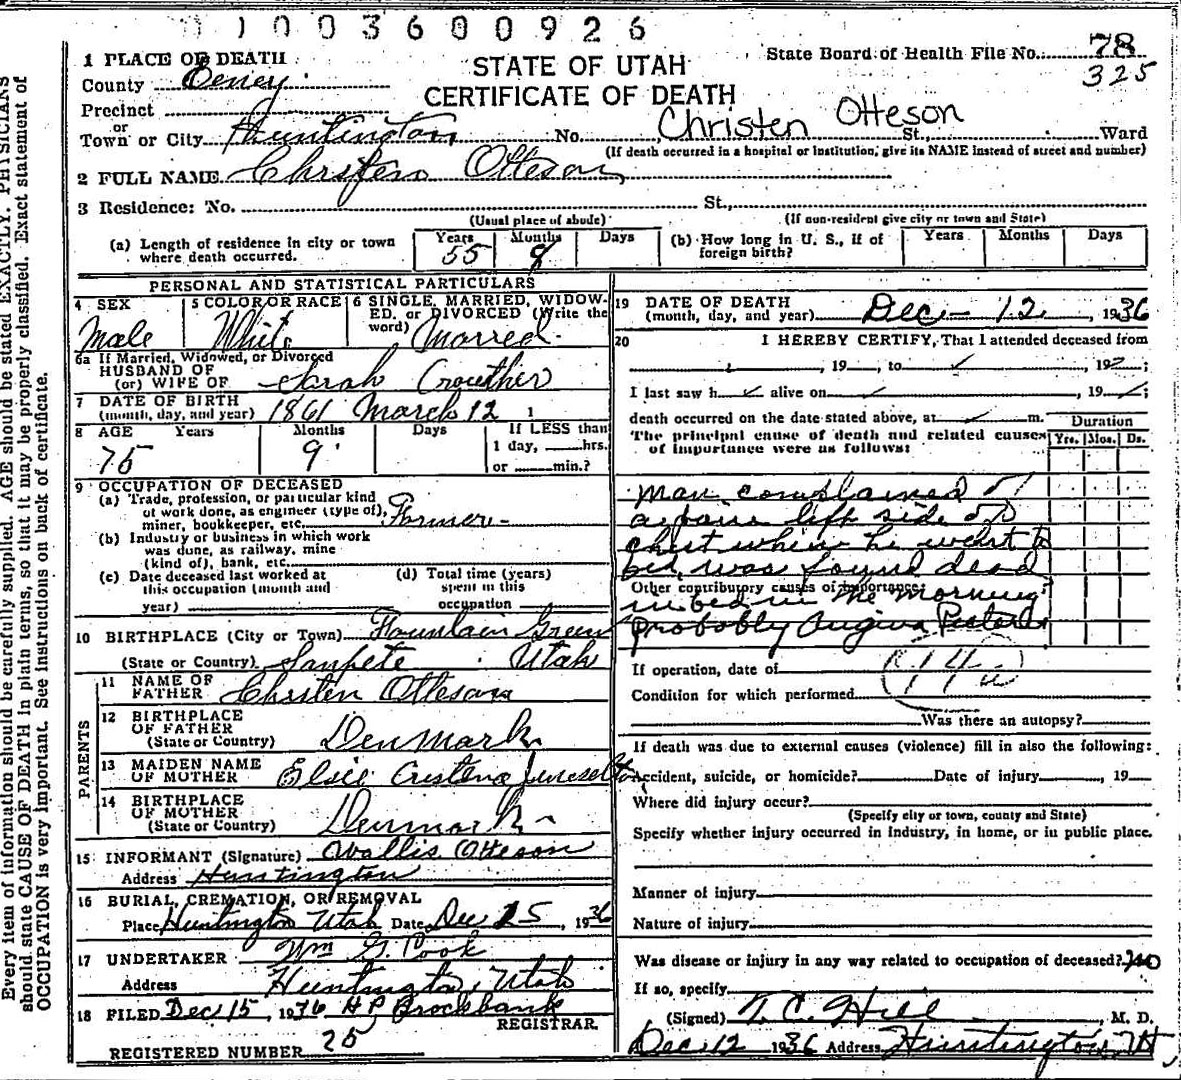 1003600926
1 PLACE OF DEATH
STATE OF UTAH
CERTIFICATE OF DEATH
State Board of Health File No. 78
325
County Emery
Precinct
or
Town or City Huntington No. St., Ward
Christen Otteson
(If death occurred in a hospital or institution, give its NAME instead of street and number)
2 FULL NAME Christen Otteson
3 Residence: No. St.,
(Usual place of abode) (If non-resident give city or town and State)
(a) Length of residence in city or town where death occurred. Years 55 Months 8 Days
(b) How long in U. S., if of foreign birth? Years Months Days
PERSONAL AND STATISTICAL PARTICULARS
4 SEX Male
5 COLOR OR RACE White
6 SINGLE, MARRIED, WIDOW-
ED. or DIVORCED (Write the
word) Marred
6a If Married, Widowed, or Divorced
HUSBAND OF
(or) WIFE OF Sarah Crowther
7 DATE OF BIRTH
(month, day, and year) 1861 March 12 1
8 AGE Years Months Days If LESS than
75 9 1 day, hrs.
or min.?
9 OCCUPATION OF DECEASED
(a) Trade, profession, or particular kind
of work done, as engineer (type of),
miner, bookkeeper, etc. Farmer-
(b) Industry or business in which work
was done, as railway, mine
(kind of), bank, etc.
(c) Date deceased last worked at
this occupation (month and
year)
(d) Total time (years)
spent in this
occupation
10 BIRTHPLACE (City or Town) Fountain Green
(State or Country) Sanpete Utah
PARENTS
11 NAME OF
FATHER Christen Otteson
12 BIRTHPLACE
OF FATHER
(State or Country) Denmark
13 MAIDEN NAME
OF MOTHER Elsie
14 BIRTHPLACE
OF MOTHER
(State or Country) Denmark
15 INFORMANT (Signature) Wallis Otteson
Address Huntington
16 BURIAL, CREMATION, OR REMOVAL
Place Huntington Utah Date Dec 15, 1936
17 UNDERTAKER Wm G. Cook
Address Huntington, Utah
18 FILED Dec 15, 1936 H P Brockbank
REGISTRAR
REGISTERED NUMBER 25
19 DATE OF DEATH
(month, day, and year) Dec - 12, 1936
20 I HEREBY CERTIFY, That I attended deceased from
, 19 , to , 19 ;
I last saw h alive on , 19 ;
death occurred on the date stated above, at m.
The principal cause of death and related causes
of importance were as follows:
Duration
Yrs. Mos. Ds.
Man complained of
a pain left side of
chest when he went to
bed, was found dead
Other contributory causes of importance:
in bed in the morning
probably Angina Pectoris
If operation, date of
94a
Condition for which performed
Was there an autopsy?
If death was due to external causes (violence) fill in also the following:
Accident, suicide, or homicide? Date of injury , 19
Where did injury occur?
(Specify city or town, county and State)
Specify whether injury occurred in industry, in home, or in public place.
Manner of injury
Nature of injury
Was disease or injury in any way related to occupation of deceased? no
If so, specify
(Signed) T. C. Hill, M. D.
Dec 12 1936 Address Huntington, Ut,
Every item of information should be carefully supplied. AGE should be stated EXACTLY. PHYSICIANS
should state CAUSE OF DEATH in plain terms, so that it may be properly classified. Exact statement of
OCCUPATION is very important. See instructions on back of certificate.